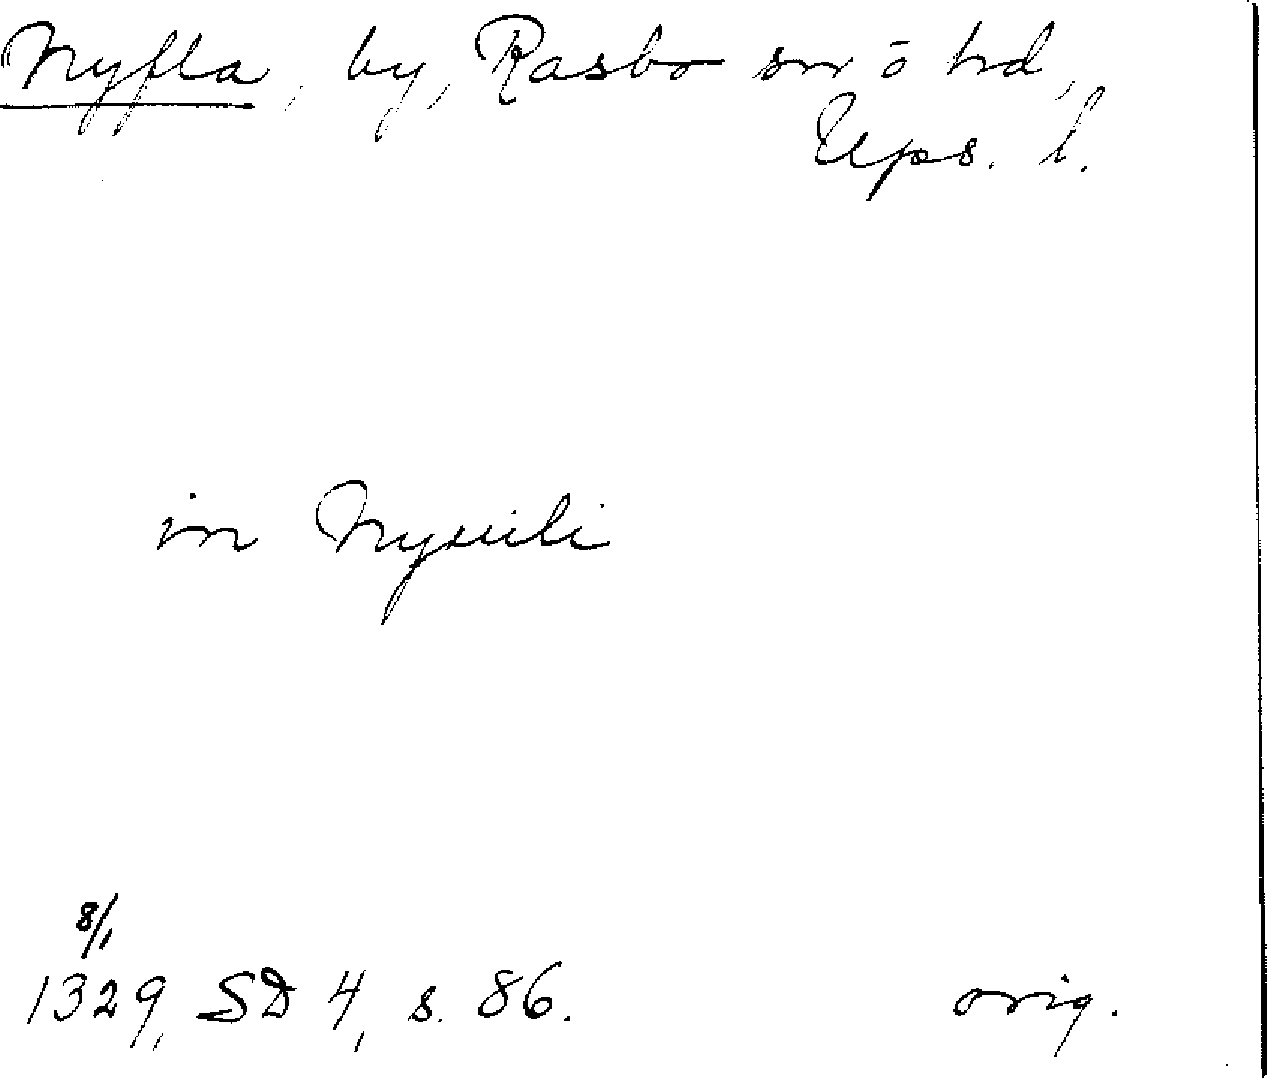 Nyfla, by, Rasbo sn o hd,
Ups. l.
in Nyuili
8/1
1329, SD 4, s. 86. orig.